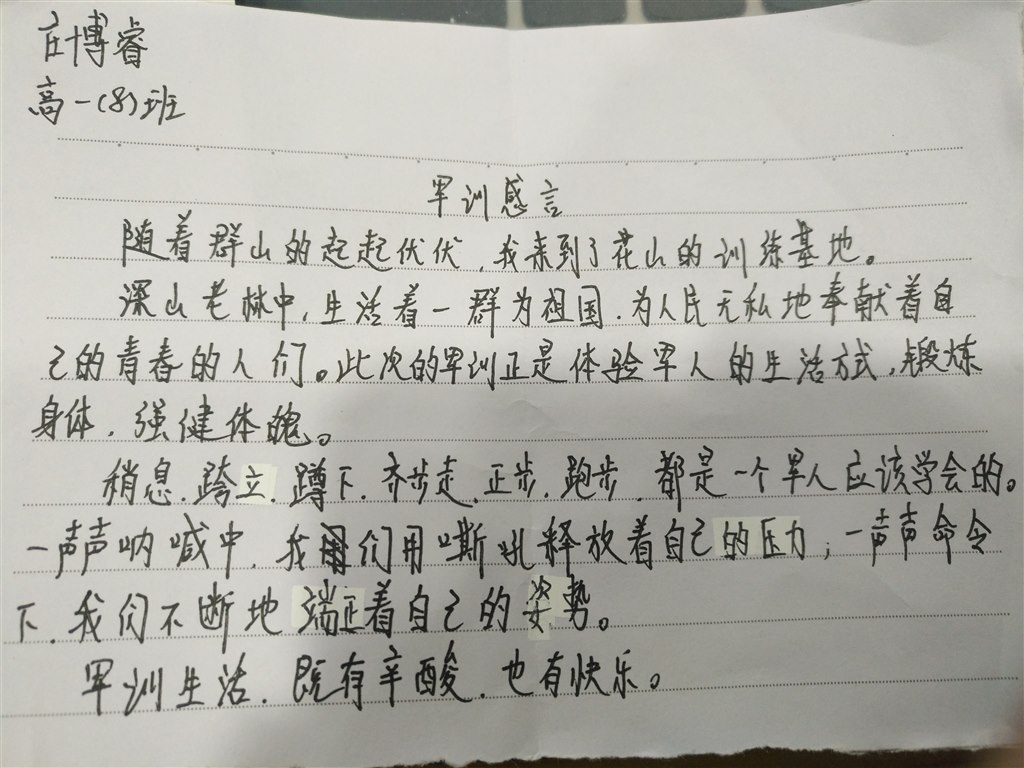 庄博睿
高一(8)班
军训感言
随着群山的起起伏伏,我来到了花山的训练基地。
深山老林中,生活着一群为祖国,为人民无私地奉献着自
己的青春的人们。此次的军训正是体验军人的生活方式,锻炼
身体,强健体魄。
稍息,跨立,蹲下,齐步走,正步,跑步,都是一个军人应该学会的。
一声声呐喊中,我们用嘶吼释放着自己的压力;一声声命令
下,我们不断地端正着自己的姿势。
军训生活,既有辛酸,也有快乐。